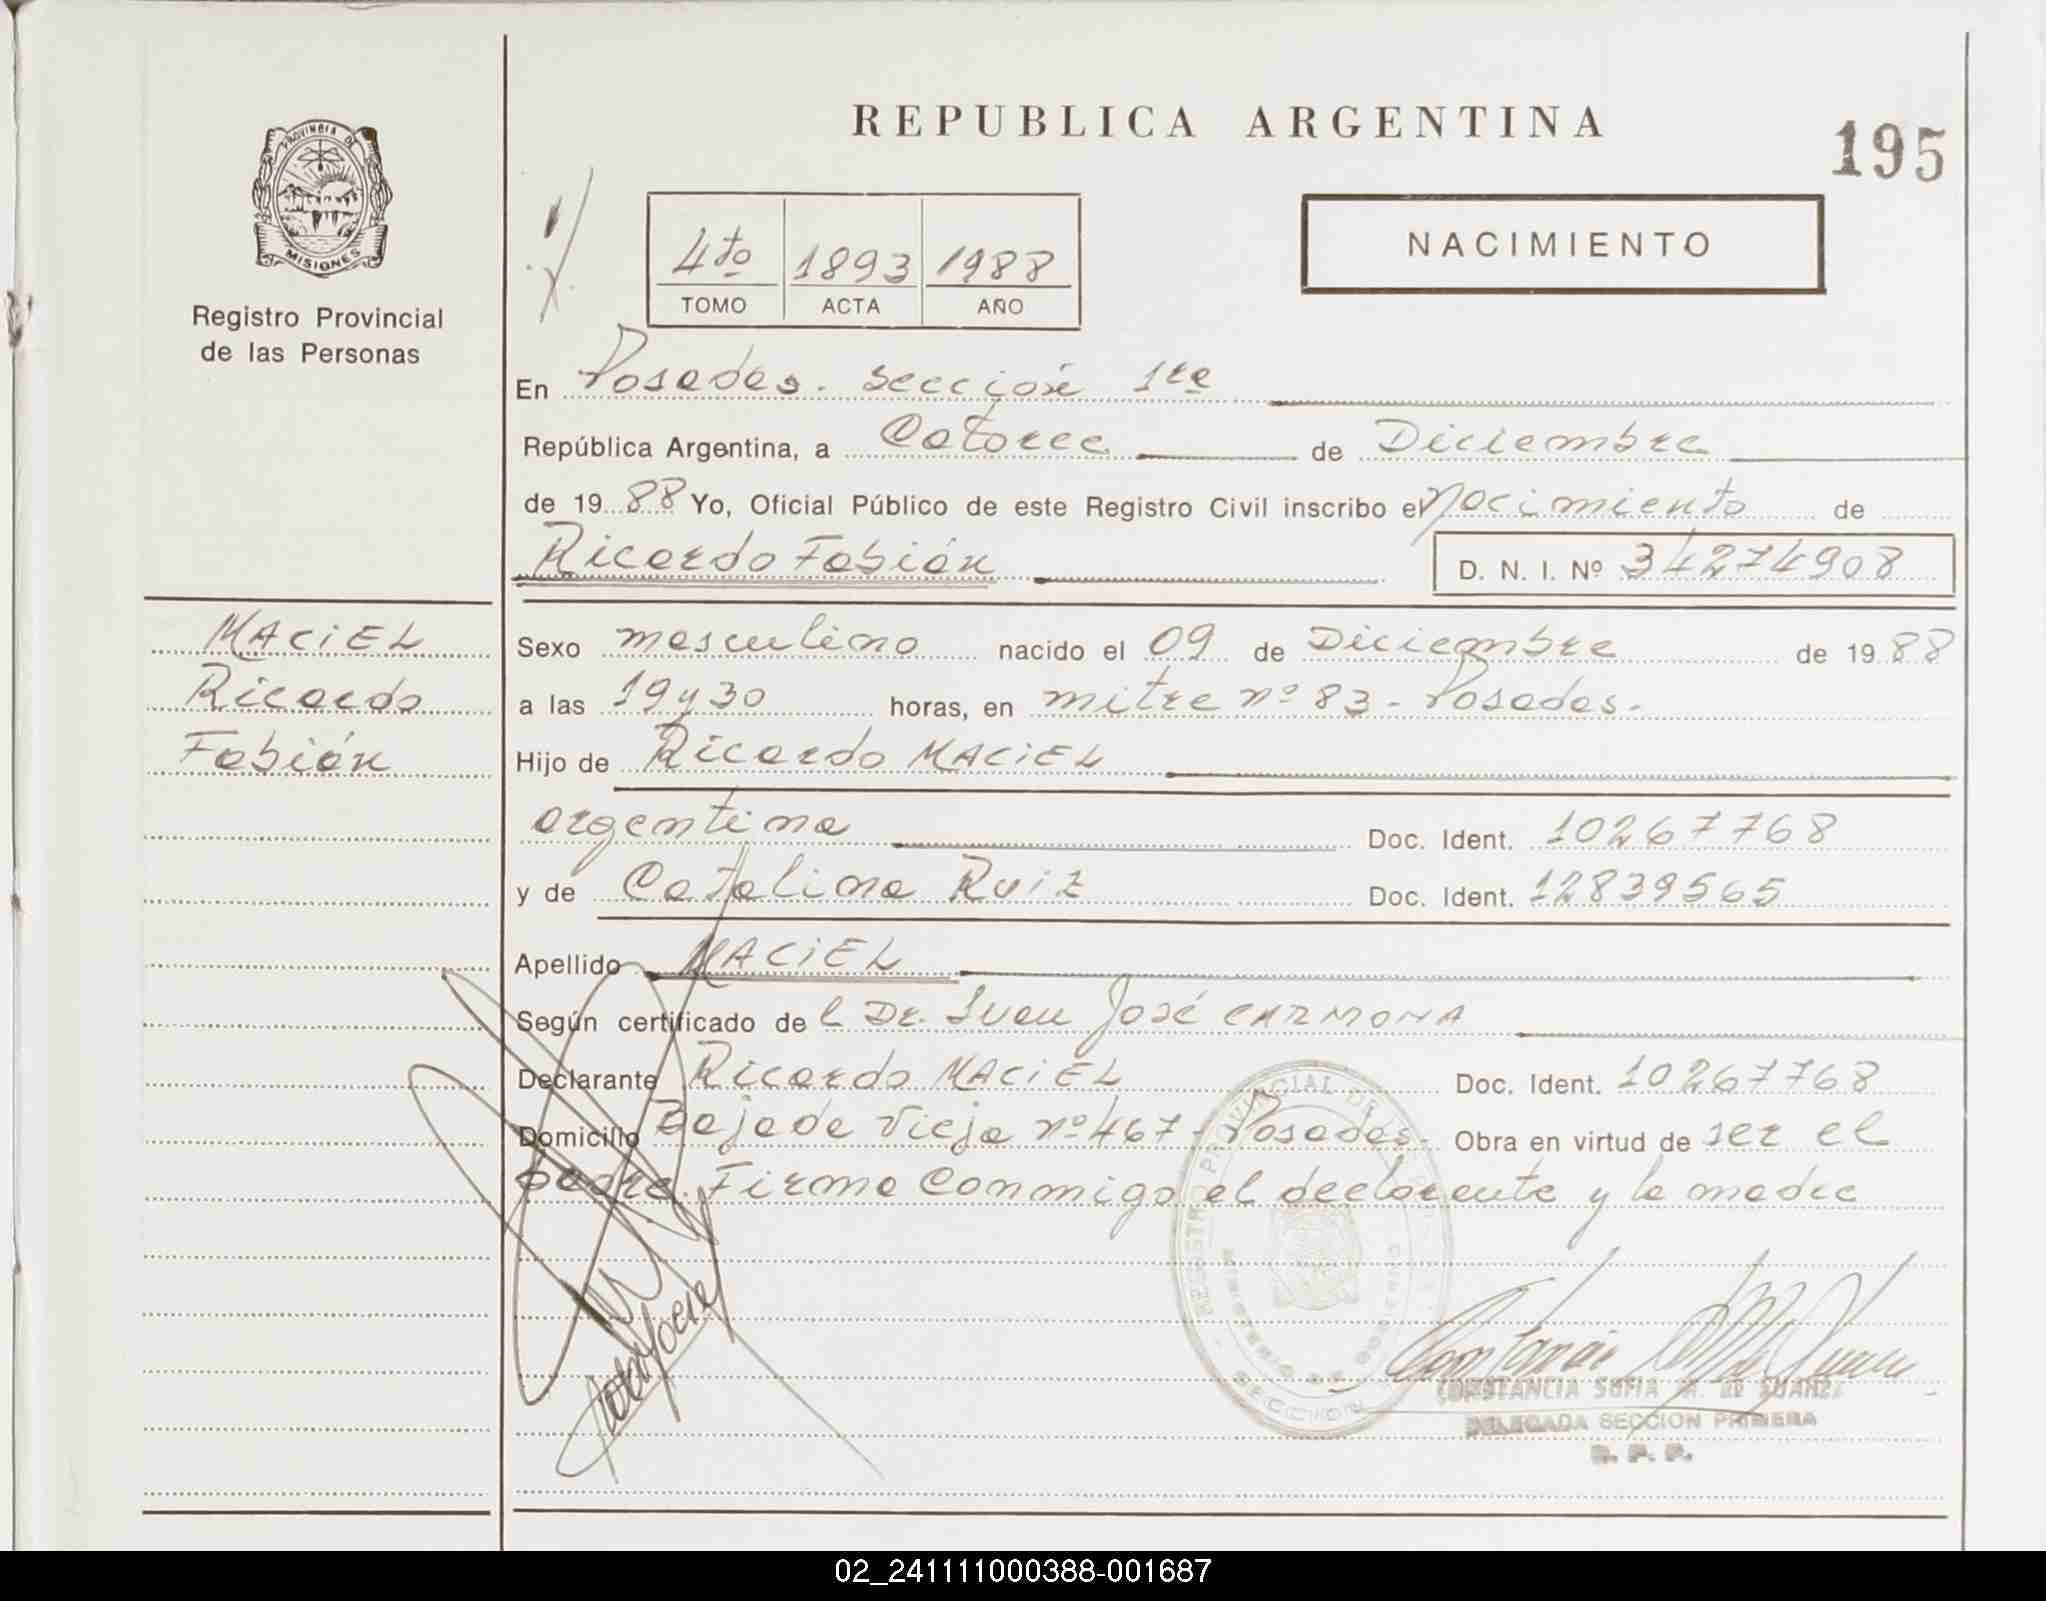 PROVINCIA DE
MISIONES
Registro Provincial
de las Personas
MACIEL
Ricardo
Fabián
REPUBLICA ARGENTINA
195
4to 1893 1988
TOMO ACTA AÑO
NACIMIENTO
En Posadas. sección 1ra
República Argentina, a Catorce de Diciembre
de 1988 Yo, Oficial Público de este Registro Civil inscribo el Nacimiento de
Ricardo Fabián D. N. I. Nº 34274908
Sexo masculino nacido el 09 de Diciembre de 1988
a las 19 y 30 horas, en mitre nº 83 - Posadas.
Hijo de Ricardo MACIEL
argentina Doc. Ident. 10267768
y de Catalina Ruiz Doc. Ident. 12839565
Apellido MACIEL
Según certificado de l Dr. Juan José CARMONA
Declarante Ricardo MACIEL Doc. Ident. 10267768
Domicilio Bajada Vieja nº 467 - Posadas. Obra en virtud de ser el
padre. Firma Conmigo el declarante y la madre
CONSTANCIA SOFIA M. DE SUAREZ
DELEGADA SECCION PRIMERA
R. P. P.
02_241111000388-001687